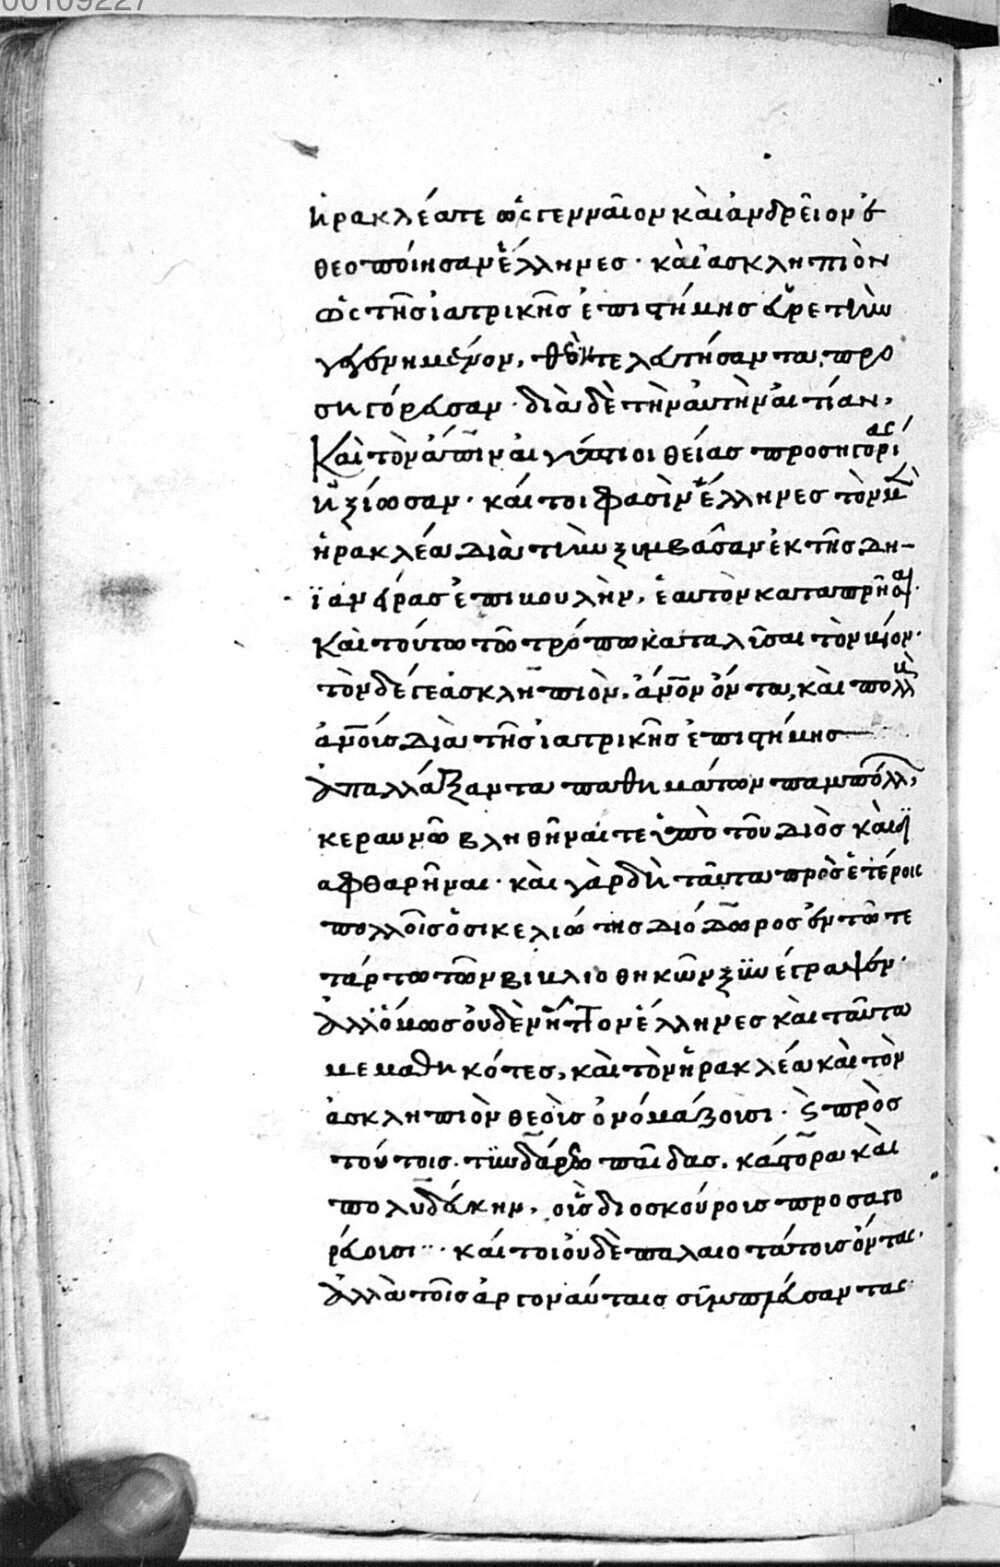 00109227
ἡρακλέα τε ὡς γενναῖον καὶ ἀνδρεῖον ἐ
θεοποίησαν ἕλληνες · καὶ ἀσκληπιὸν
ὡς τῆς ἰατρικῆς ἐπιστήμης ἀρετὴν
θεὸν τελευτήσαντα, προ
σηγόρευσαν · διὰ δὲ τὴν αὐτὴν αἰτίαν,
Καὶ τὸν ἄπιν αἰγύπτιοι θείας προσηγορίας
ἠξίωσαν · καί τοι φασὶν ἕλληνες τὸν μὲν
ἡρακλέα διὰ τὴν ξυμβᾶσαν ἐκ τῆς δη-
ϊανείρας ἐπιβουλὴν, ἑαυτὸν καταπρῆσαι ·
Καὶ τούτω τῶ τρόπω καταλῦσαι τὸν βίον ·
τὸν δέ γε ἀσκληπιὸν, ἄνον ὄντα, καὶ πολλοὺς
ἀνοις διὰ τῆς ἰατρικῆς ἐπιστήμης
ἀπαλλάξαντα παθημάτων παμπόλλων,
κεραυνῶ βληθῆναί τε ὑπὸ τοῦ διὸς καὶ δι
αφθαρῆναι · καὶ γὰρ δὴ ταῦτα πρὸς ἑτέροις
πολλοῖς ὁ σικελιώτης διόδωρος ἐν τῶ τε
τάρτω τῶν βιβλιοθηκῶν ξυνέγραψεν ·
Ἀλλ' ὅμως οὐδὲν ἧττον ἕλληνες καὶ ταῦτα
μεμαθηκότες, καὶ τὸν ἡρακλέα καὶ τὸν
ἀσκληπιὸν θεοὺς ὀνομάζουσι · καὶ πρὸς
τούτοις τυνδάρεω παῖδας, κάστορα καὶ
πολυδεύκην, οὓς διοσκούρους προσαγο
ρεύουσι · καί τοι οὐδὲ παλαιοτάτους ὄντας ·
Ἀλλὰ τοῖς ἀργοναύταις συμπλεύσαντας ·